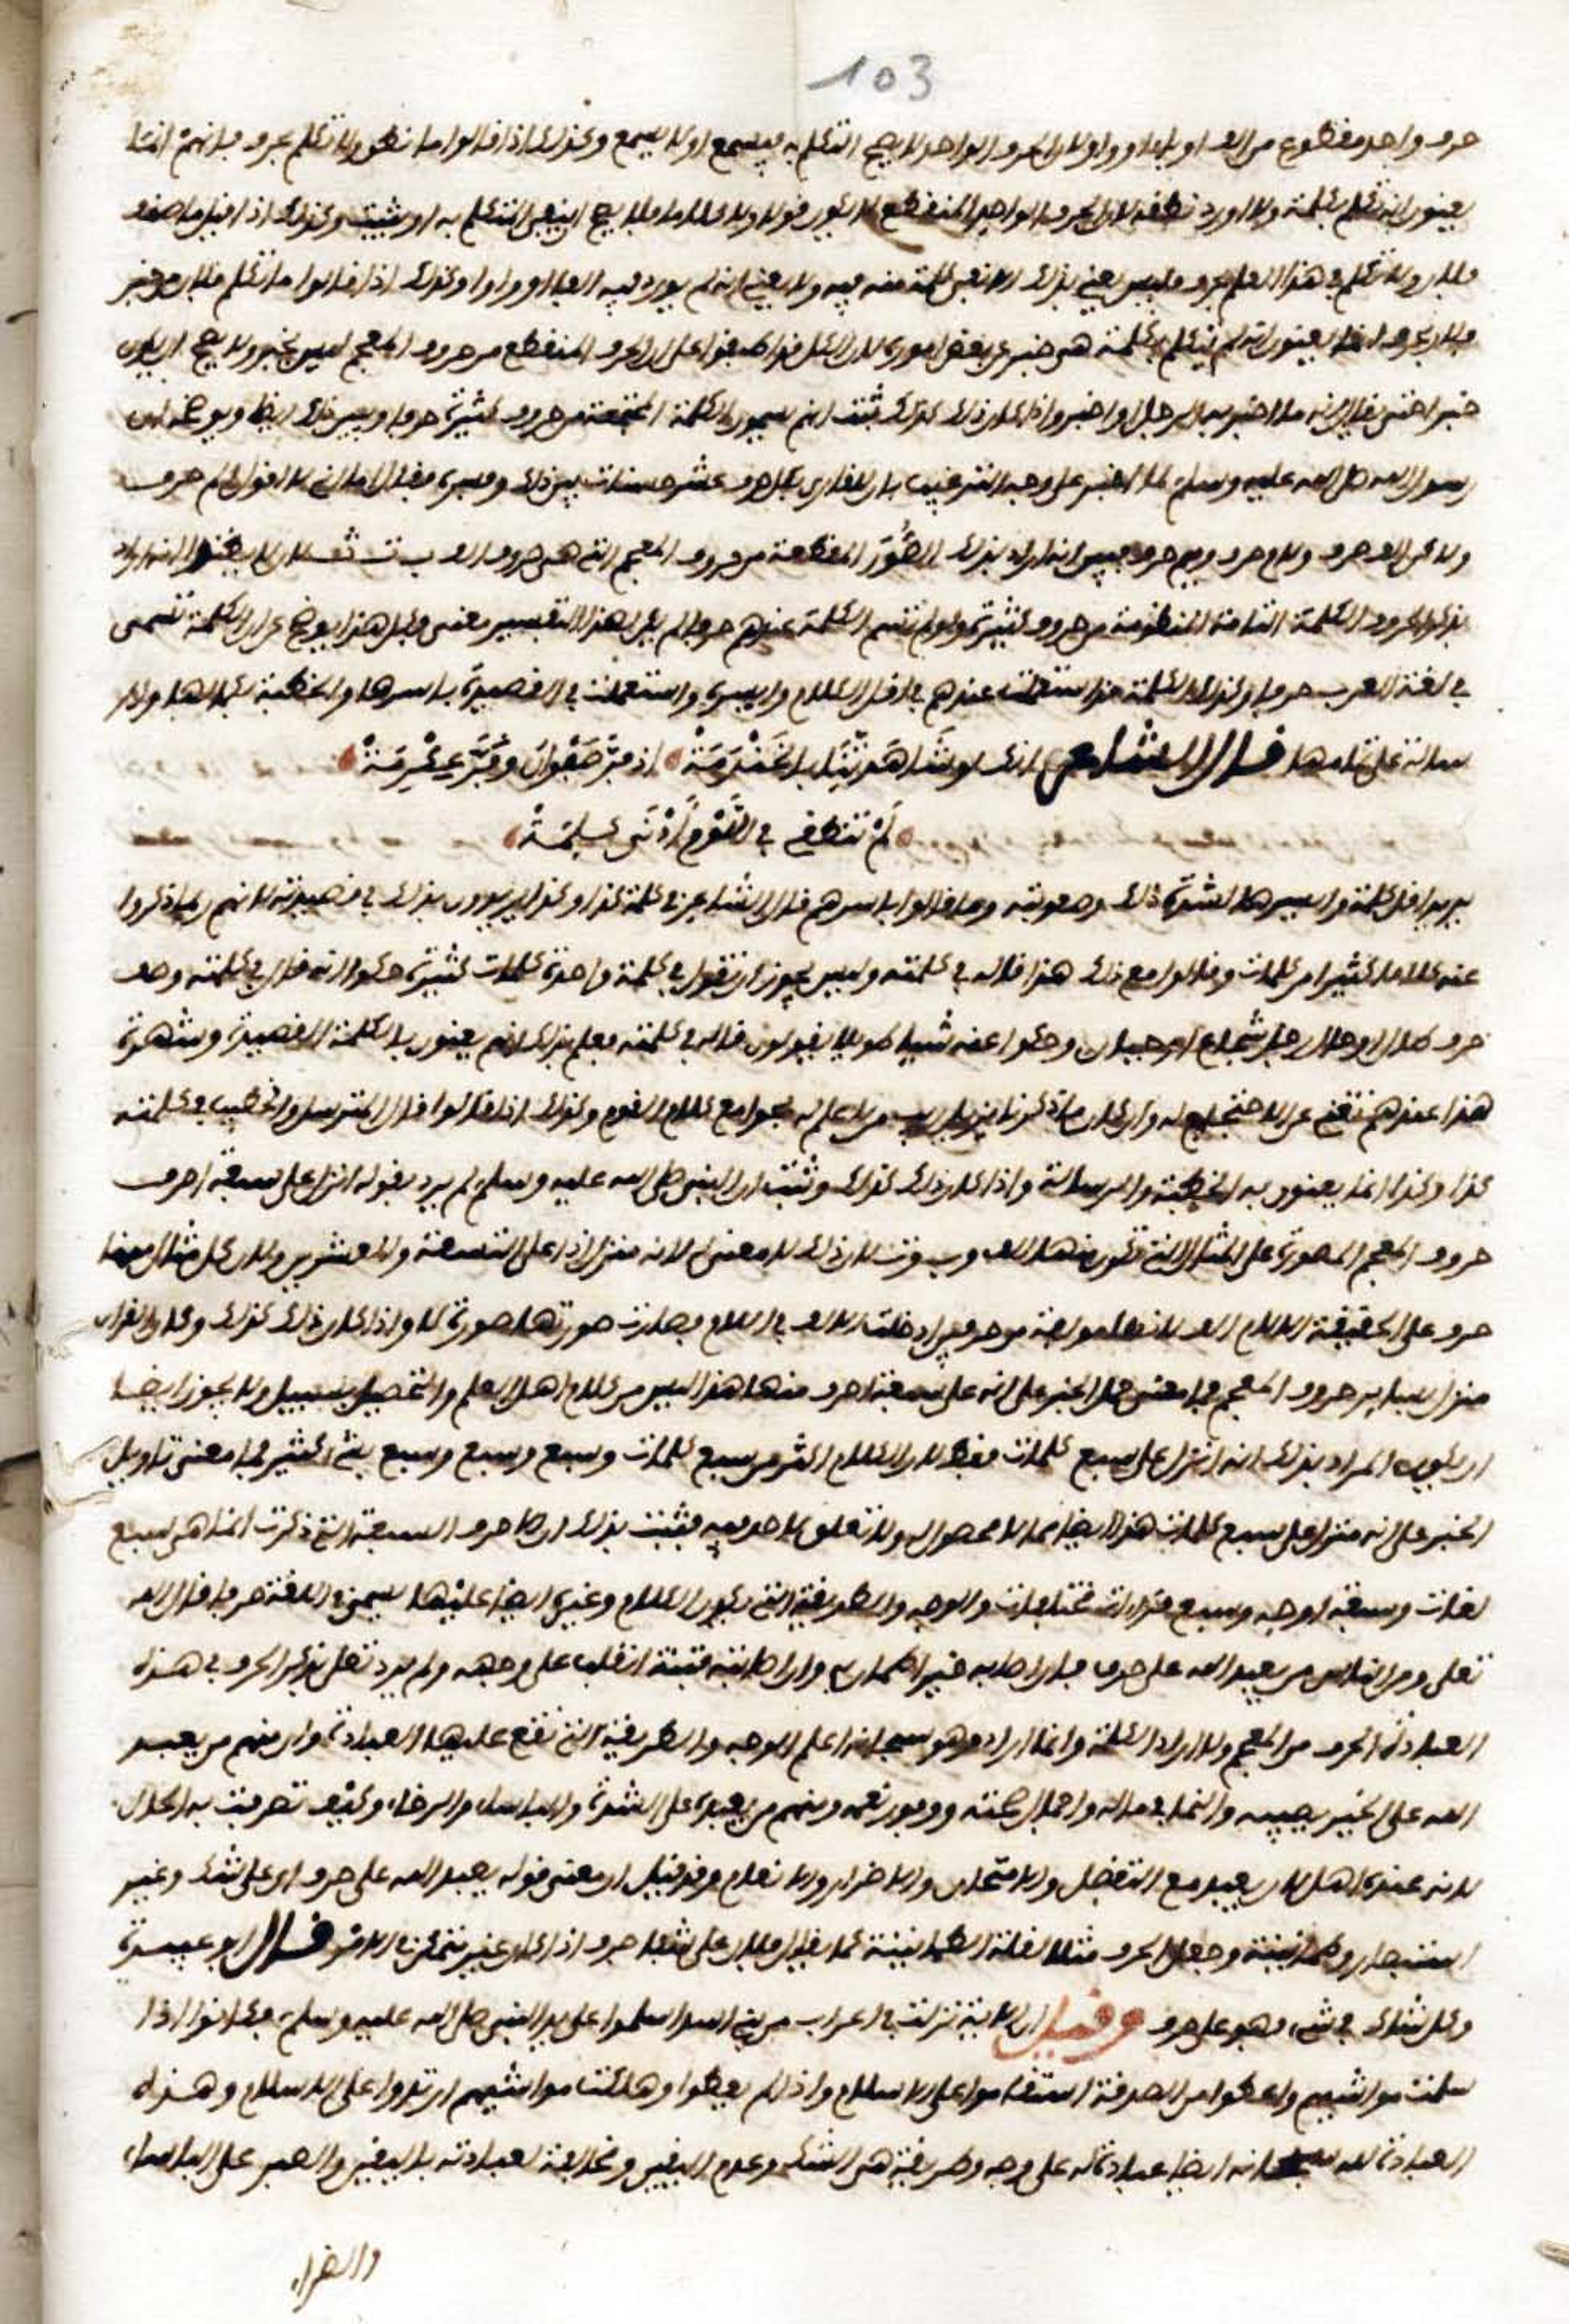 103
حرف واحد مقطوع من الف او باء او واو لان الحرف الواحد لا يصح التكلم به فيسمع او لا يسمع وكذلك اذا قالوا ما نطق ولا تكلم بحرف فانهم انما
يعنون انه تكلم بكلمة ولا اورد نطقه لان الحرف الواحد المنقطع لا يكون قولا ولا كلاما فلا يصح ان ينفى التكلم به او يثبت وكذلك اذا قيل ما
فلان ولا تكلم في هذا العلم بحرف فليس يعني بذلك الا نفي كلمة منه فيه ولا يعني انه لم يورد فيه الفا او واوا وكذلك اذا قالوا ما تكلم فلان
فلان بحرف انما يعنون انه لم يتكلم بكلمة هي خبر عن بعض اموره لان الكل قد اطبقوا على ان الحرف المنقطع من حروف المعجم ليس بخبر ولا يصح ان يكون
خبرا حتى يقال انه ما اخبر به الرجل او اخبر واذا كان ذلك كذلك ثبت انهم يسمون الكلمة المجتمعة من حروف كثيرة حرفا ويبين ذلك ايضا ويوضحه ان
رسول الله صلى الله عليه وسلم لما اخبر على وجه الترغيب بان للقارئ بكل حرف عشر حسنات بين ذلك وفسره فقال اما اني لا اقول الم حرف
ولكن الف حرف ولام حرف وميم حرف فليس انه اراد بذلك الصُّوَر المقطعة من حروف المعجم التي هي حروف ا ب ت ث
بذكر الحروف الكلمة التامة المنظومة من حروف كثيرة ولو لم تسم الكلمة عندهم حرفا لم يكن لهذا التفسير معنى وكل هذا يوضح عن ان الكلمة تسمى
في لغة العرب حرفا وكذلك الكلمة قد استعملت عندهم في اقل الكلام وايسره واستعملت في القصيدة باسرها والخطبة بكمالها والر
سالة على تمامها قال الشاعر انك لو شَاهَدْتِنَا بالخَنْدَمَةْ اذ فَرَّ صَفْوَان وفَرَّ عِكْرِمَةْ
لَمْ تنطقي في اللَّوْمِ أَدْنَى كَلِمَةْ
يريد اقل كلمة وايسرها لشدة ذلك وصعوبته وما قالوا باسرهم قال الشاعر في كلمة كذا وكذا يريدون بذلك في قصيدته لانهم ربما ذكروا
عنه كلاما كثيرا من كلمات وقالوا مع ذلك هذا قاله في كلمته وليس يجوز ان تقول في كلمة واحدة كلمات كثيرة حكوا انه قال في كلمته وصف
حرف كمال او حال رجل شجاع او جبان وحكوا عنه شيئا طويلا يقولون قاله في كلمته فعلم بذلك انهم يعنون بالكلمة القصيدة وشهرة
هذا عندهم تغني عن الاحتجاج له وان كان ما ذكرنا يزيل الريب من لا علم له بجوامع كلام القوم وكذلك اذا قالوا قال المترسل والخطيب في كلمته
كذا وكذا انما يعنون به الخطبة والرسالة واذا كان ذلك كذلك وثبت ان النبي صلى الله عليه وسلم لم يرد بقوله انزل على سبعة احرف
حروف المعجم المصورة على المثال التي تكون منها الف وب وت لان ذلك لا معنى له لانه منزل اذا على التسعة والعشرين ولان كل مثال منها
حرف على الحقيقة الا لام الف لانها مولفة من حرفين ادخلت الالف في اللام فصارت صورتها صورة لا واذا كان ذلك كذلك وكان القران
منزل بسائر حروف المعجم فما معنى حمل الخبر على انه على سبعة احرف منها هذا ليس من كلام اهل العلم والتحصيل بسبيل ولا يجوز ايضا
ان يكون المراد بذلك انه انزل على سبع كلمات فقط لان الكلام اكثر من سبع كلمات وسبع وسبع وسبع بشئ كثير فما معنى تاويل
الخبر على انه منزل على سبع كلمات هذا ايضا مما لا محصول له ولا تعلق لاحد فيه فثبت بذلك ان الاحرف السبعة التي ذكرت انما هي سبع
لغات وسبعة اوجه وسبع قراات مختلفات والوجه والطريقة التي يكون الكلام وغيره ايضا عليها يسمى في اللغة حرفا قال الله
تعلى ومن الناس من يعبد الله على حرف فان اصابه خير اطمان به وان اصابته فتنة انقلب على وجهه ولم يرد تعلى بذكر الحرف في هذه
العبادة الحرف من المعجم ولا اراد الكلمة وانما اراد وهو سبحانه اعلم الوجه والطريقة التي تقع عليها العبادة وان منهم من يعبد
الله على الخير يصيبه والنما في ماله واكمال صحته ووفور نعمه ومنهم من يعبده على الشدة والباساء والرخاء وكيف تصرفت به الحال
لانه عنده اهل لان يعبد مع التفضل والامتحان والاضرار والانعام وقد قيل ان معنى قوله يعبد الله على حرف اي على شك وغير
استبصار وطمانينة وجعل الحرف مثلا لقلة الطمانينة كما يقال فلان على شفا حرف اذا كان غير متمكن في الامر قال ابو عبيدة
وكل شاك في شئ فهو على حرف وقيل ان الاية نزلت في اعراب من بني اسد اسلموا على يد النبي صلى الله عليه وسلم فكانوا اذا
سلمت مواشيهم واعطوا من الصدقة استقاموا على الاسلام واذا لم يعطوا وهلكت مواشيهم ارتدوا على الاسلام وهذه
العبادة لله سبحانه ايضا عبادة له على وجه وطريقة هي الشك وعدم اليقين ومخالفة لعبادته باليقين والصبر على الباساء
والضراء